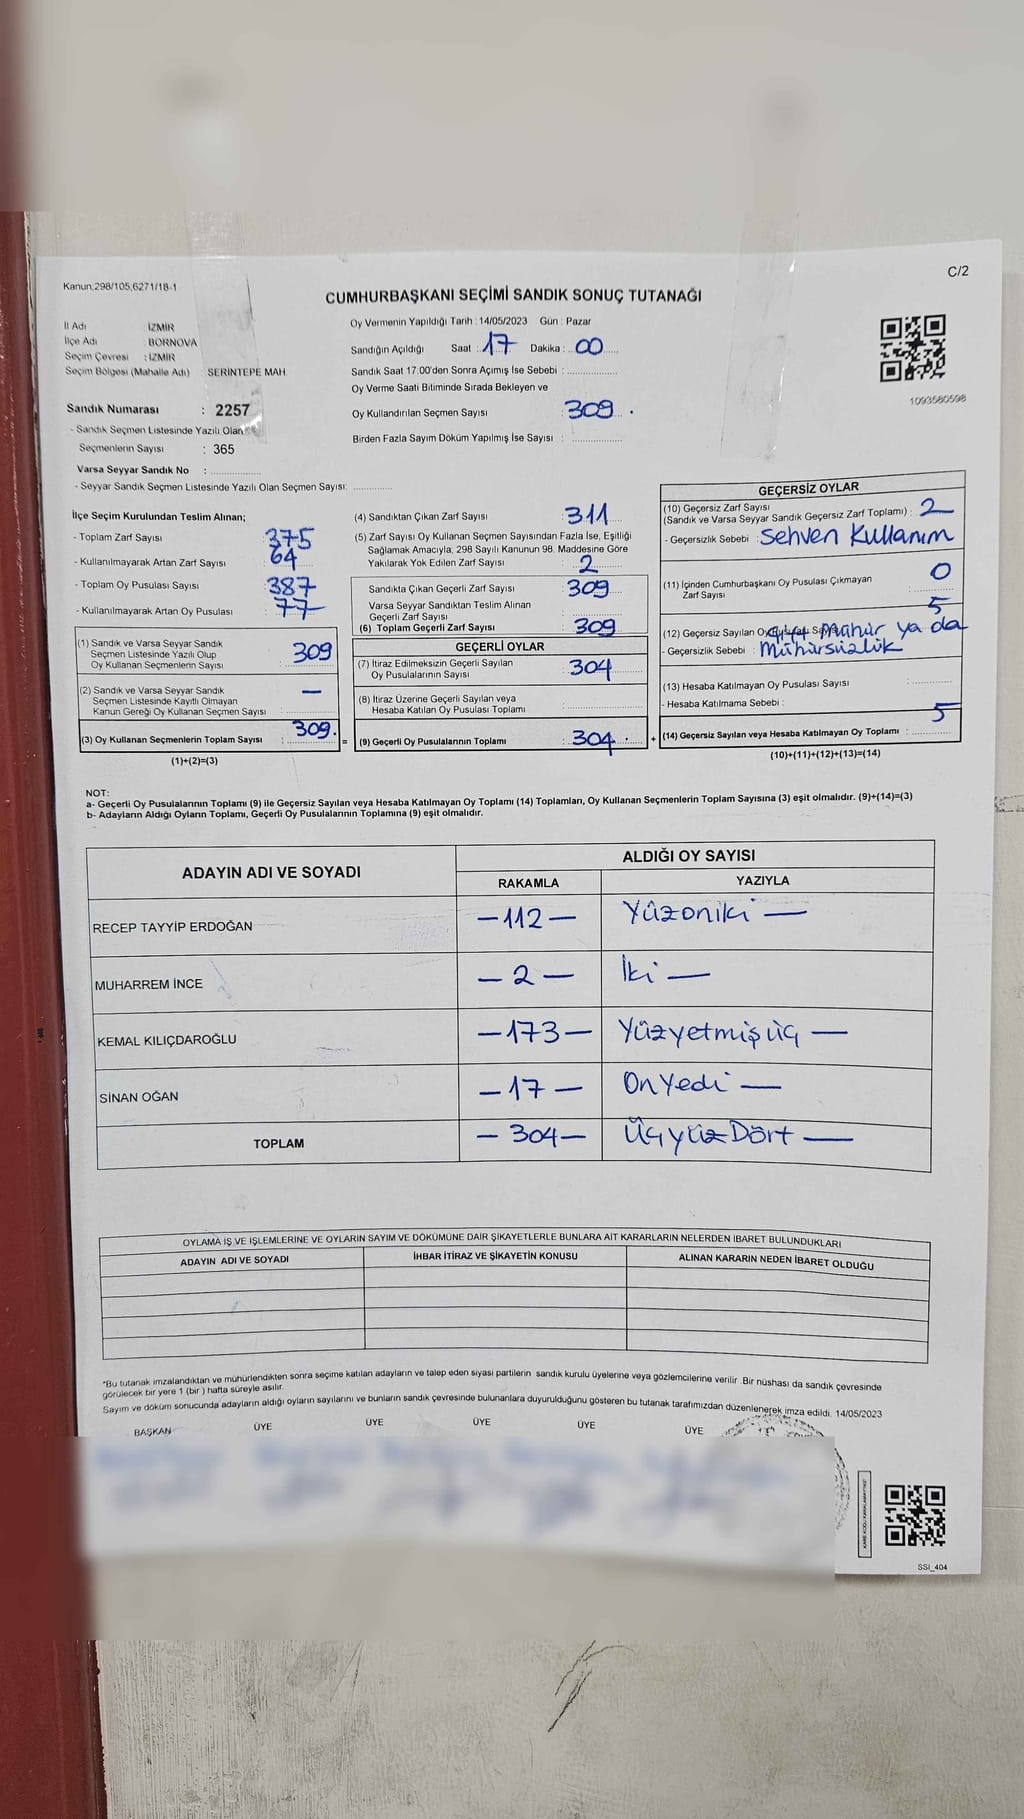 C/2
Kanun:298/105,6271/18-1
CUMHURBAŞKANI SEÇİMİ SANDIK SONUÇ TUTANAĞI
İl Adı : İZMİR
İlçe Adı : BORNOVA
Seçim Çevresi : İZMİR
Seçim Bölgesi (Mahalle Adı) SERİNTEPE MAH.
Sandık Numarası : 2257
- Sandık Seçmen Listesinde Yazılı Olan
Seçmenlerin Sayısı : 365
Varsa Seyyar Sandık No :
- Seyyar Sandık Seçmen Listesinde Yazılı Olan Seçmen Sayısı:
Oy Vermenin Yapıldığı Tarih : 14/05/2023 Gün : Pazar
Sandığın Açıldığı Saat : 17 Dakika : 00
Sandık Saat 17.00'den Sonra Açımış İse Sebebi :
Oy Verme Saati Bitiminde Sırada Bekleyen ve
Oy Kullandırılan Seçmen Sayısı : 309
Birden Fazla Sayım Döküm Yapılmış İse Sayısı :
1093580598
İlçe Seçim Kurulundan Teslim Alınan;
- Toplam Zarf Sayısı : 375
- Kullanılmayarak Artan Zarf Sayısı : 64
- Toplam Oy Pusulası Sayısı : 387
- Kullanılmayarak Artan Oy Pusulası : 77
(1) Sandık ve Varsa Seyyar Sandık
Seçmen Listesinde Yazılı Olup
Oy Kullanan Seçmenlerin Sayısı : 309
(2) Sandık ve Varsa Seyyar Sandık
Seçmen Listesinde Kayıtlı Olmayan
Kanun Gereği Oy Kullanan Seçmen Sayısı : —
(3) Oy Kullanan Seçmenlerin Toplam Sayısı : 309. =
(1)+(2)=(3)
(4) Sandıktan Çıkan Zarf Sayısı : 311
(5) Zarf Sayısı Oy Kullanan Seçmen Sayısından Fazla İse, Eşitliği
Sağlamak Amacıyla, 298 Sayılı Kanunun 98. Maddesine Göre
Yakılarak Yok Edilen Zarf Sayısı : 2
Sandıkta Çıkan Geçerli Zarf Sayısı : 309
Varsa Seyyar Sandıktan Teslim Alınan
Geçerli Zarf Sayısı :
(6) Toplam Geçerli Zarf Sayısı : 309
GEÇERLİ OYLAR
(7) İtiraz Edilmeksizin Geçerli Sayılan
Oy Pusulalarının Sayısı : 304
(8) İtiraz Üzerine Geçerli Sayılan veya
Hesaba Katılan Oy Pusulası Toplamı :
(9) Geçerli Oy Pusulalarının Toplamı : 304 +
GEÇERSİZ OYLAR
(10) Geçersiz Zarf Sayısı
(Sandık ve Varsa Seyyar Sandık Geçersiz Zarf Toplamı) : 2
- Geçersizlik Sebebi : Sehven Kullanım
(11) İçinden Cumhurbaşkanı Oy Pusulası Çıkmayan
Zarf Sayısı : 0
(12) Geçersiz Sayılan Oy 5
mühür ya da
- Geçersizlik Sebebi : Mühürsüzlük
(13) Hesaba Katılmayan Oy Pusulası Sayısı :
- Hesaba Katılmama Sebebi :
(14) Geçersiz Sayılan veya Hesaba Katılmayan Oy Toplamı : 5
(10)+(11)+(12)+(13)=(14)
NOT:
a- Geçerli Oy Pusulalarının Toplamı (9) ile Geçersiz Sayılan veya Hesaba Katılmayan Oy Toplamı (14) Toplamları, Oy Kullanan Seçmenlerin Toplam Sayısına (3) eşit olmalıdır. (9)+(14)=(3)
b- Adayların Aldığı Oyların Toplamı, Geçerli Oy Pusulalarının Toplamına (9) eşit olmalıdır.
ADAYIN ADI VE SOYADI ALDIĞI OY SAYISI
RAKAMLA YAZIYLA
RECEP TAYYİP ERDOĞAN —112— Yüzoniki —
MUHARREM İNCE —2— İki —
KEMAL KILIÇDAROĞLU —173— Yüzyetmişüç —
SİNAN OĞAN —17— Onyedi —
TOPLAM —304— ÜçyüzDört —
OYLAMA İŞ VE İŞLEMLERİNE VE OYLARIN SAYIM VE DÖKÜMÜNE DAİR ŞİKAYETLERLE BUNLARA AİT KARARLARIN NELERDEN İBARET BULUNDUKLARI
ADAYIN ADI VE SOYADI İHBAR İTİRAZ VE ŞİKAYETİN KONUSU ALINAN KARARIN NEDEN İBARET OLDUĞU
*Bu tutanak imzalandıktan ve mühürlendikten sonra seçime katılan adayların ve talep eden siyasi partilerin sandık kurulu üyelerine veya gözlemcilerine verilir. Bir nüshası da sandık çevresinde
görülecek bir yere 1 (bir) hafta süreyle asılır.
Sayım ve döküm sonucunda adayların aldığı oyların sayılarını ve bunların sandık çevresinde bulunanlara duyurulduğunu gösteren bu tutanak tarafımızdan düzenlenerek imza edildi. 14/05/2023
BAŞKAN ÜYE ÜYE ÜYE ÜYE ÜYE
SSİ_404